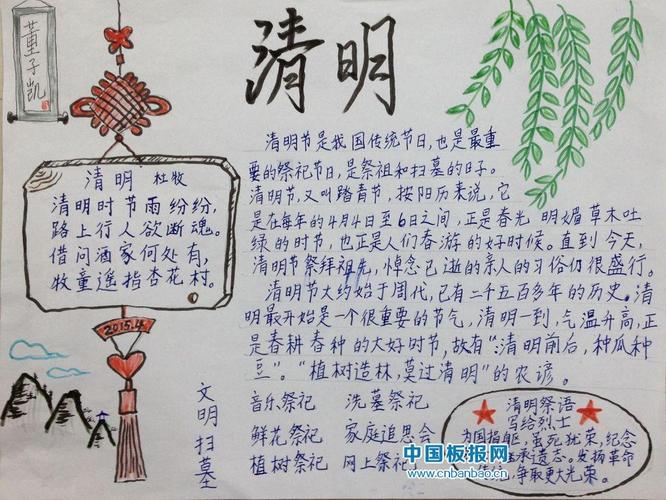 董子凯
清明
清明 杜牧
清明时节雨纷纷,
路上行人欲断魂。
借问酒家何处有,
牧童遥指杏花村。
2015.4
清明节是我国传统节日,也是最重
要的祭祀节日,是祭祖和扫墓的日子。
清明节,又叫踏青节,按阳历来说,它
是在每年的4月4日至6日之间,正是春光 明媚草木吐
绿的时节,也正是人们春游的好时候。直到今天,
清明节祭拜祖先,悼念已逝的亲人的习俗仍很盛行。
清明节大约始于周代,已有二千五百多年的历史。清
明最开始是一个很重要的节气,清明一到,气温升高,正
是春耕春种的大好时节,故有“清明前后,种瓜种
豆”。“植树造林,莫过清明”的农谚。
文明扫墓
音乐祭祀 洗墓祭祀
鲜花祭祀 家庭追思会
植树祭祀 网上祭祀
清明祭语
写给烈士
为国捐躯,虽死犹荣,纪念
承遗志。发扬革命
争取更大光荣。
中国板报网
www.cnbanbao.cn